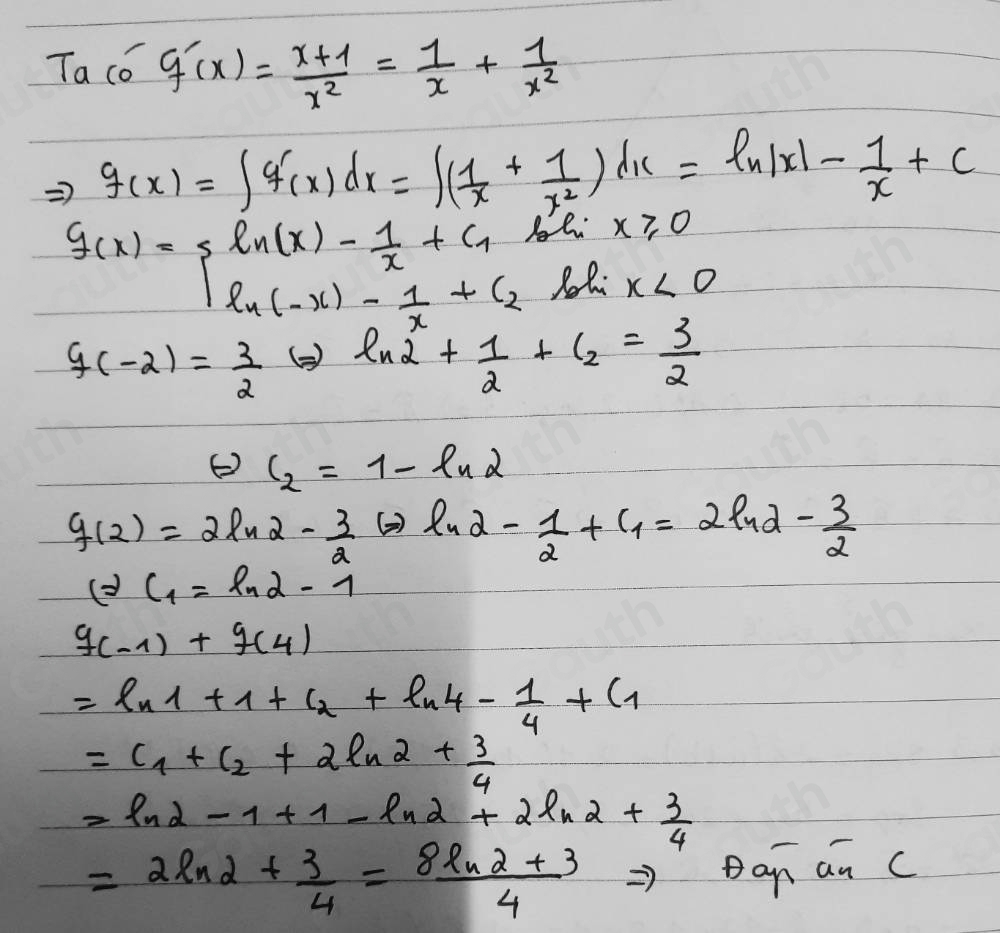 Ta có g'(x) = \frac{x+1}{x^2} = \frac{1}{x} + \frac{1}{x^2}
⇒ g(x) = ∫g'(x)dx = ∫(\frac{1}{x} + \frac{1}{x^2})dx = ln|x| - \frac{1}{x} + C
g(x) = { ln(x) - \frac{1}{x} + C_1 khi x ≥ 0
ln(-x) - \frac{1}{x} + C_2 khi x < 0
g(-2) = \frac{3}{2} ⇔ ln2 + \frac{1}{2} + C_2 = \frac{3}{2}
⇔ C_2 = 1 - ln2
g(2) = 2ln2 - \frac{3}{2} ⇔ ln2 - \frac{1}{2} + C_1 = 2ln2 - \frac{3}{2}
⇔ C_1 = ln2 - 1
g(-1) + g(4)
= ln1 + 1 + C_2 + ln4 - \frac{1}{4} + C_1
= C_1 + C_2 + 2ln2 + \frac{3}{4}
= ln2 - 1 + 1 - ln2 + 2ln2 + \frac{3}{4}
= 2ln2 + \frac{3}{4} = \frac{8ln2 + 3}{4} ⇒ Đáp án C